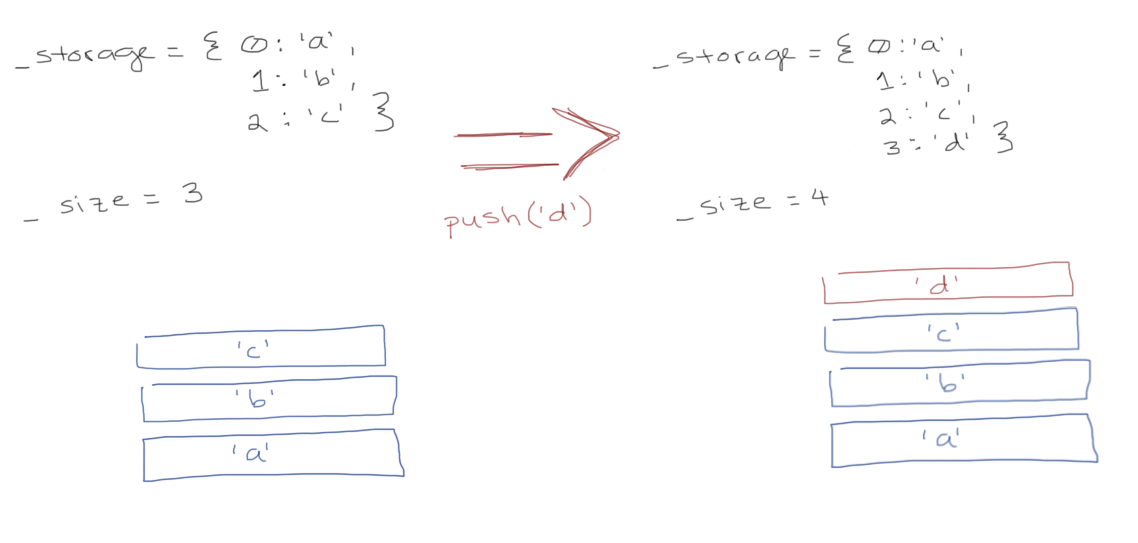 _storage = { 0: 'a',
1: 'b',
2: 'c' }
_size = 3
push('d')
_storage = { 0:'a',
1:'b',
2:'c',
3:'d' }
_size = 4
'c'
'b'
'a'
'd'
'c'
'b'
'a'